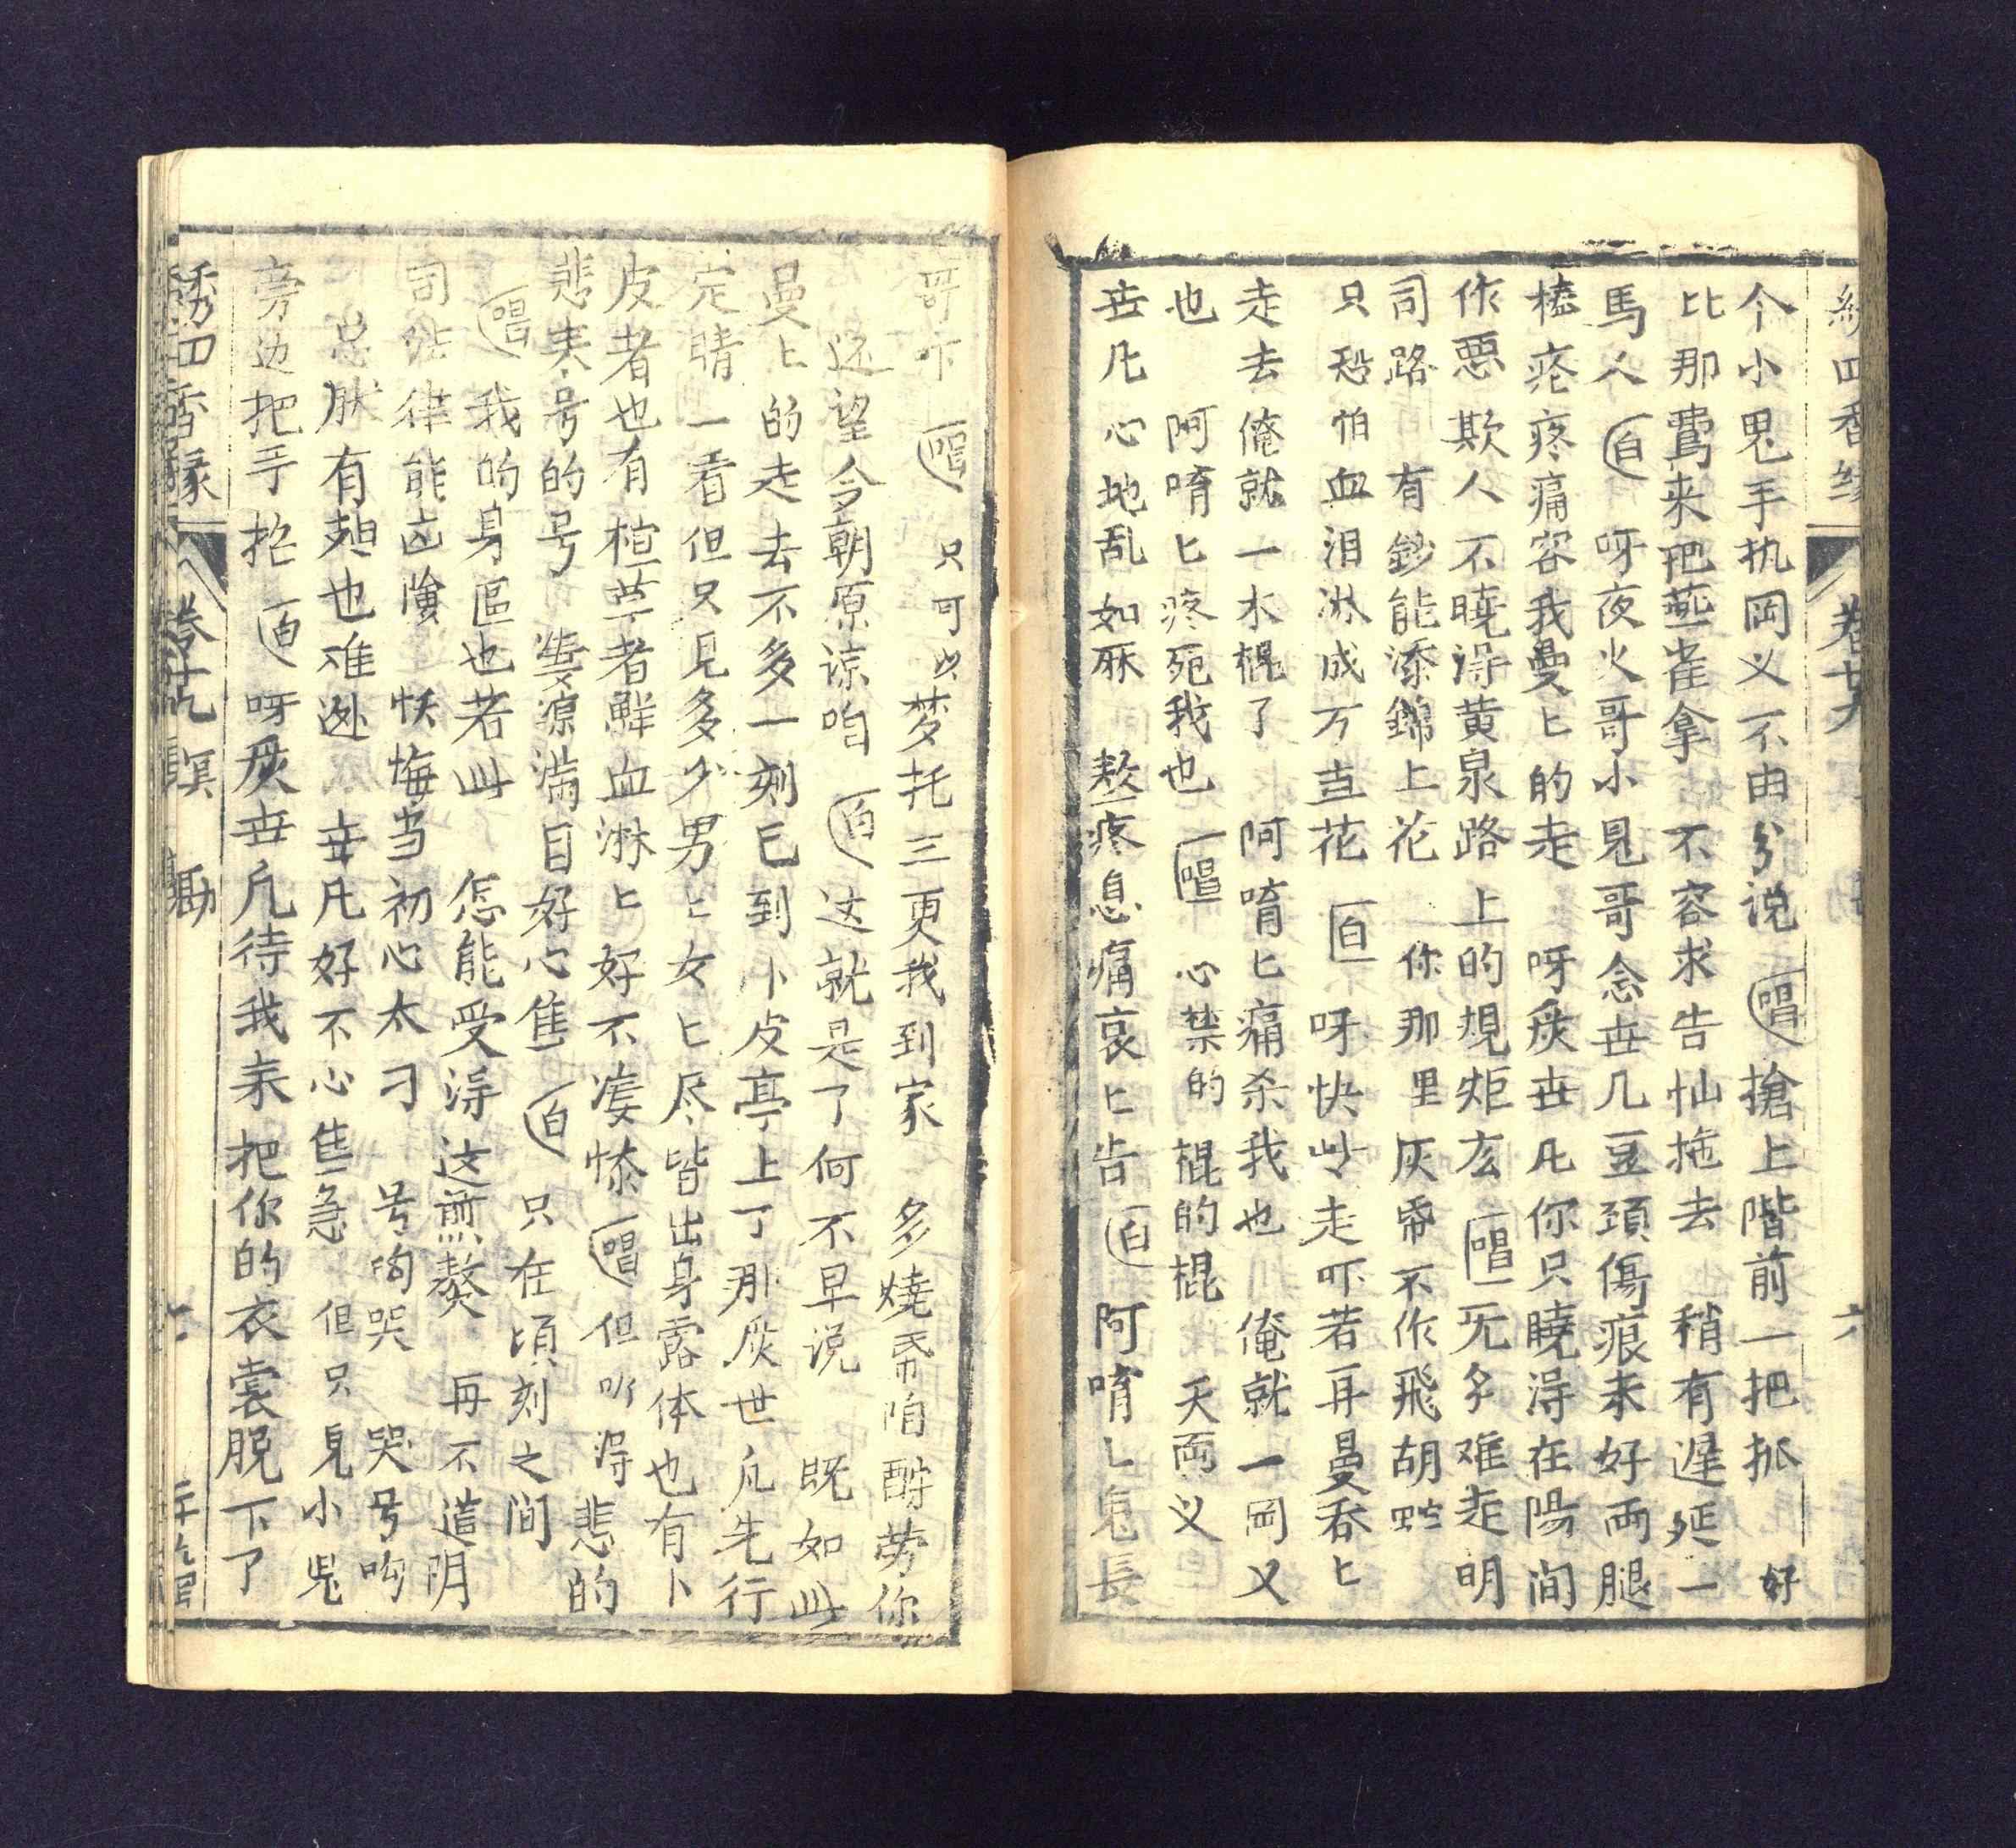 綉四香缘 卷廿九 六
个小鬼手执冈义不由分说 唱 搶上階前一把抓 好
比那鸞来把燕雀拿 不容求告忙拖去 稍有遲延一
馬人 白 呀夜火哥小鬼哥念世几豆頚傷痕未好両腿
棒疮疼痛容我曼匕的走 呀灰世几你只曉淂在陽间
作悪欺人不曉淂黄泉路上的規矩庅 唱 旡名难走明
司路 有鈔能添錦上花 你那里灰帋不作飛胡
只恐怕血泪淋成万古花 白 呀快些走吓若再曼吞匕
走去俺就一木棍了 阿唷匕痛杀我也 俺就一冈义
也 阿唷匕疼死我也 唱 心禁的 棍的棍 天両义
世凡心地乱如麻 熬疼息痛哀匕告 白 阿唷匕鬼長
哥吓 唱 只可以梦托三更我到家 多燒帋陌酧劳你
还望令朝原谅咱 白 这就是了何不早说 既如此
曼匕的走去不多一刻已到卜皮亭上了那灰世凡先行
定睛一看但只見多少男匕女匕尽皆出身露体也有卜
皮者也有楦草者鮮血淋匕 好不凄惨 唱 但听淂悲的
悲来号的号 凄凉满目好心焦 白 只在頃刻之间
唱 我的身區也若此 怎能受淂这煎熬 再不道阴
司法律能凶 恹悔当初心太刁 号啕哭 哭号啕
总肰有趐也难逊 世凡好不心焦急 但只見小鬼
旁边把手招 白 呀灰世凡待我来把你的衣裳脱下了
綉四香缘 卷廿九 冥勘 七